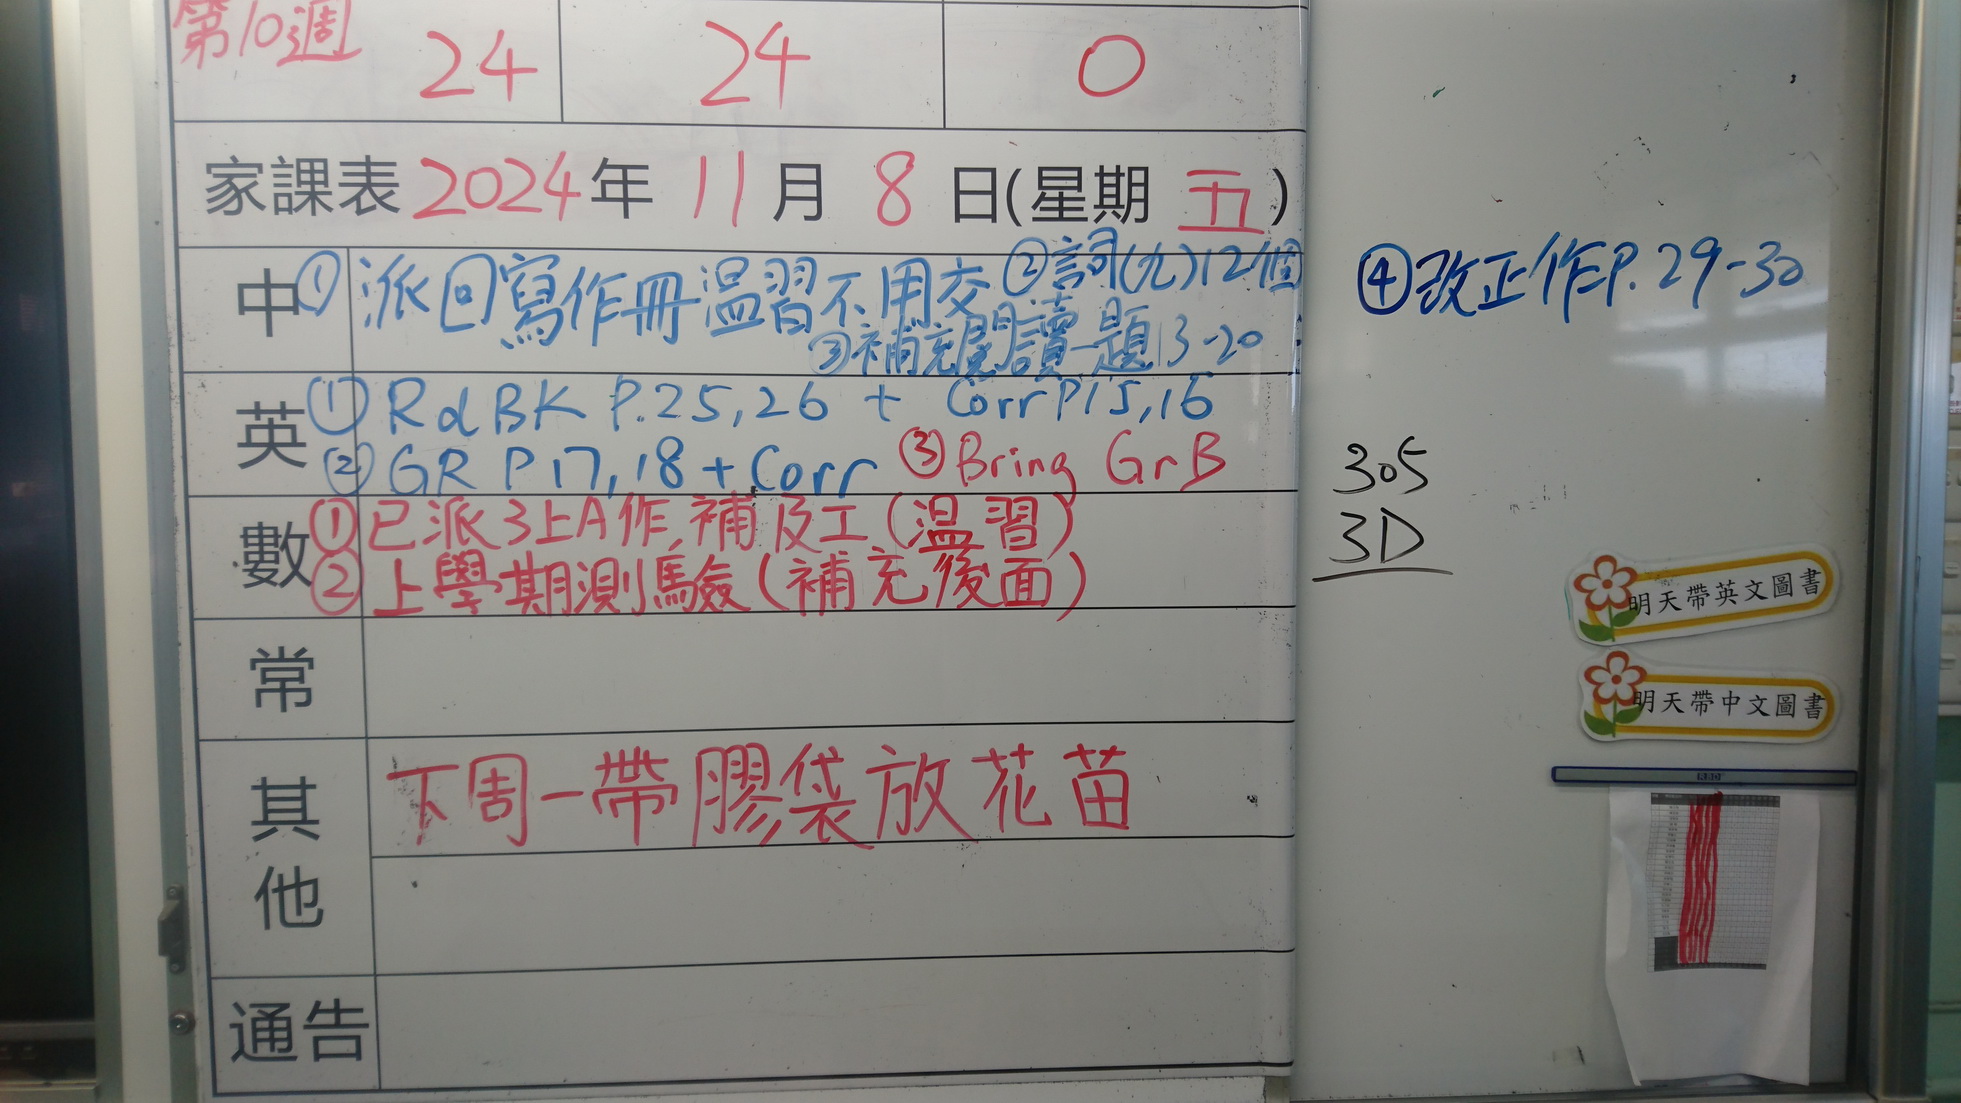 第10週 24 24 0
家課表 2024年 11月 8日(星期 五)
中 ① 派回寫作冊温習不用交 ②詞(九)12個
③補充閱讀一題13-20
④改正作P.29-30
英 ① Rd BK P.25,26 + Corr P15,16
② GR P17,18 + Corr ③Bring GrB
數 ①已派3上A作,補及工(温習)
②上學期測驗(補充後面)
常
其他 下周一帶膠袋放花苗
通告
305
3D
明天帶英文圖書
明天帶中文圖書